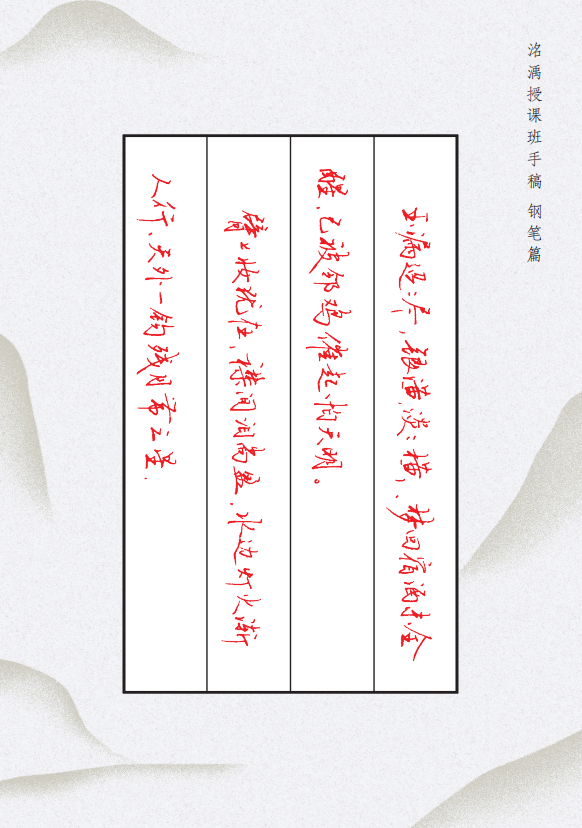 洺㵄授课班手稿 钢笔篇
玉漏迢迢尽，银潢淡淡横，梦回宿酒未全
醒，已被邻鸡催起、怕天明。
臂上妆犹在，襟间泪尚盈，水边灯火渐
人行，天外一钩残月带三星.